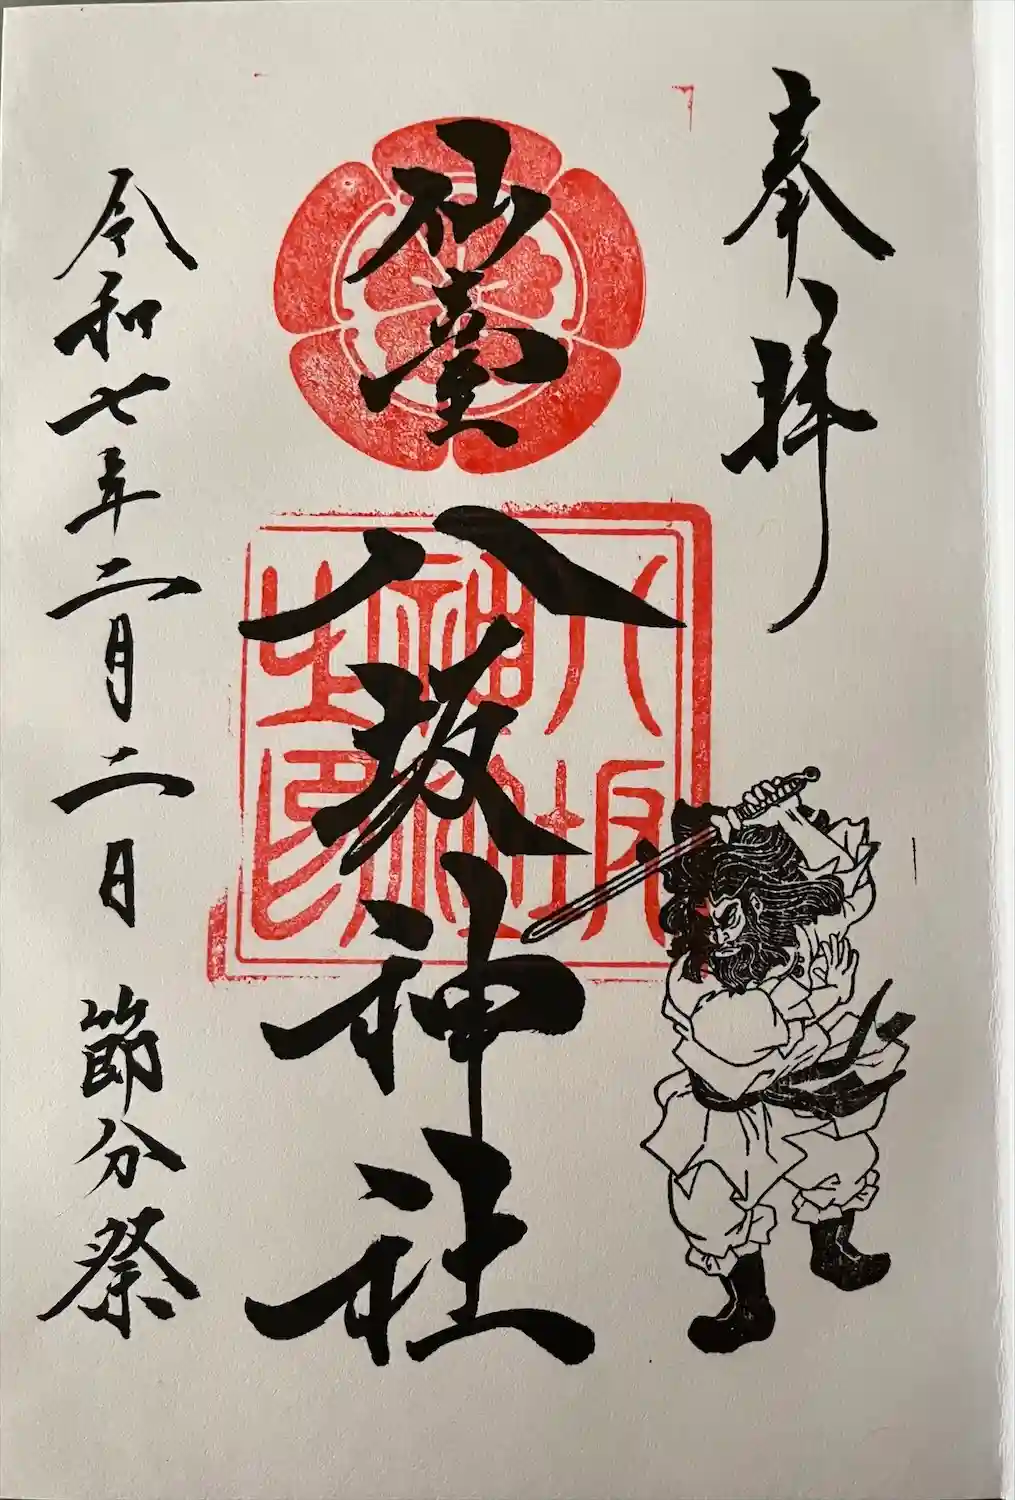 奉拝
仙臺
八坂神社
八坂
神社
之印
令和七年二月二日 節分祭